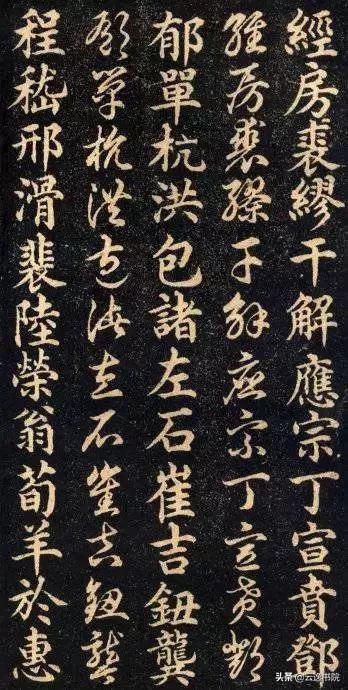 經房裘繆干解應宗丁宣賁鄧
經房裘繆干解應宗丁宣賁鄧
郁單杭洪包諸左石崔吉鈕龔
郁單杭洪包諸左石崔吉鈕龔
程嵇邢滑裴陸榮翁荀羊於惠
头条 @云逸书院